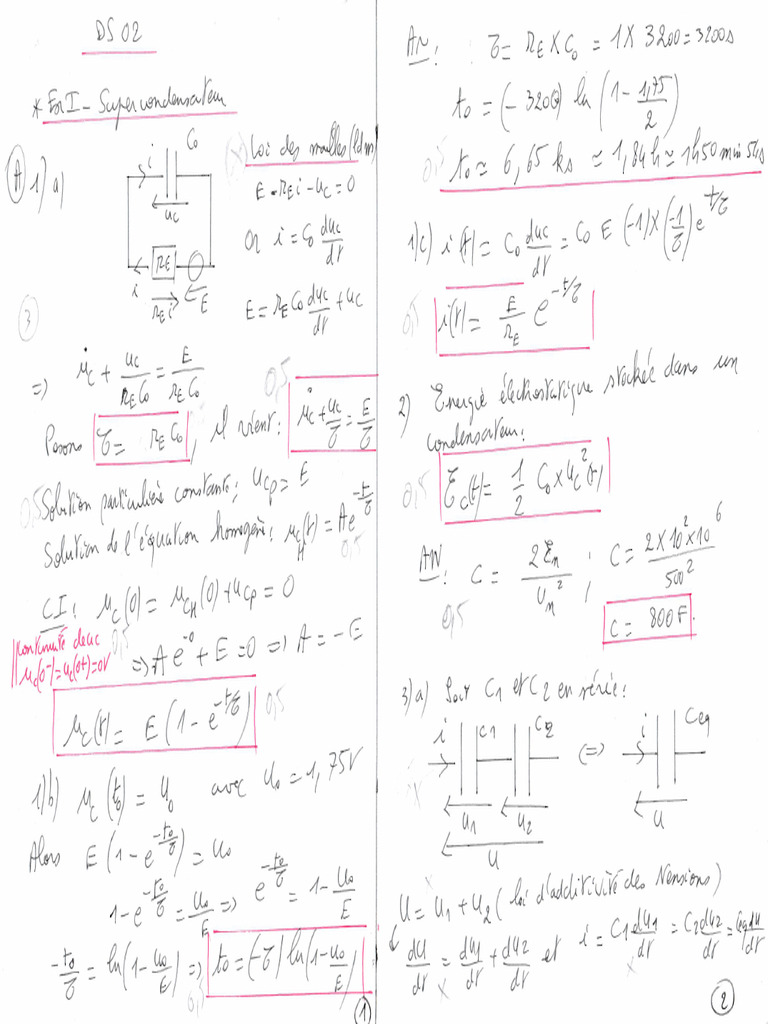 DS 02
* Ex I - Supercondensateur
A 1) a)
C₀
i
u_C
R_E
i
R_E i
E
Loi des mailles (ldm)
E - R_E i - u_C = 0
Or i = C₀ du_C/dt
E = R_E C₀ du_C/dt + u_C
3
=> u̇_C + u_C/(R_E C₀) = E/(R_E C₀)
0,5
Posons τ = R_E C₀, il vient : u̇_C + u_C/τ = E/τ
0,5 Solution particulière constante : u_Cp = E
Solution de l'équation homogène : u_CH(t) = A e^(-t/τ)
0,5
CI : u_C(0) = u_CH(0) + u_Cp = 0
continuité de u_C
u_C(0-) = u_C(0+) = 0V
0,5
=> A e^-0 + E = 0 => A = -E
u_C(t) = E (1 - e^(-t/τ))
0,5
1)b) u_C(t₀) = U₀ avec U₀ = 1,75V
Alors E (1 - e^(-t₀/τ)) = U₀
1 - e^(-t₀/τ) = U₀/E => e^(-t₀/τ) = 1 - U₀/E
-t₀/τ = ln(1 - U₀/E) => t₀ = (-τ) ln(1 - U₀/E)
0,5
1
AN : τ = R_E × C₀ = 1 × 3200 = 3200s
t₀ = (-3200) ln (1 - 1,75/2)
0,5
t₀ ≃ 6,65 ks ≃ 1,84h ≃ 1h50min 54s
1)c) i(t) = C₀ du_C/dt = C₀ E (-1) × (-1/τ) e^(-t/τ)
0,5
i(t) = E/R_E e^(-t/τ)
2) Energie électrostatique stockée dans un
condensateur :
0,5
E_C(t) = 1/2 C₀ × u_C²(t)
AN : C = 2E_n/U_n² ; C = (2 × 10² × 10⁶)/500²
0,5
C = 800 F.
3)a) Soit C1 et C2 en série :
i C1 C2 <=> i Ceq
u1 u2 u
u
u = u1 + u2 (loi d'additivité des tensions)
↳ du/dt = du1/dt + du2/dt et i = C1 du1/dt = C2 du2/dt = Ceq du/dt
2